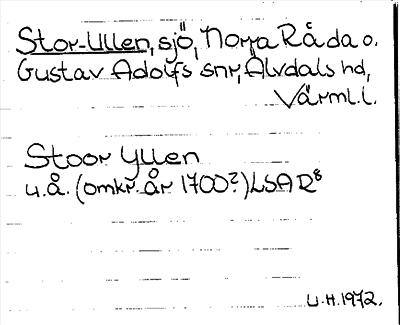 Stor-Ullen, sjö, Norra Råda o.
Gustav Adolfs snr, Älvdals hd,
Värml. l.
Stoor Yllen
u.å. (omkr. år 1700?) LSA R8
U.H. 1972.